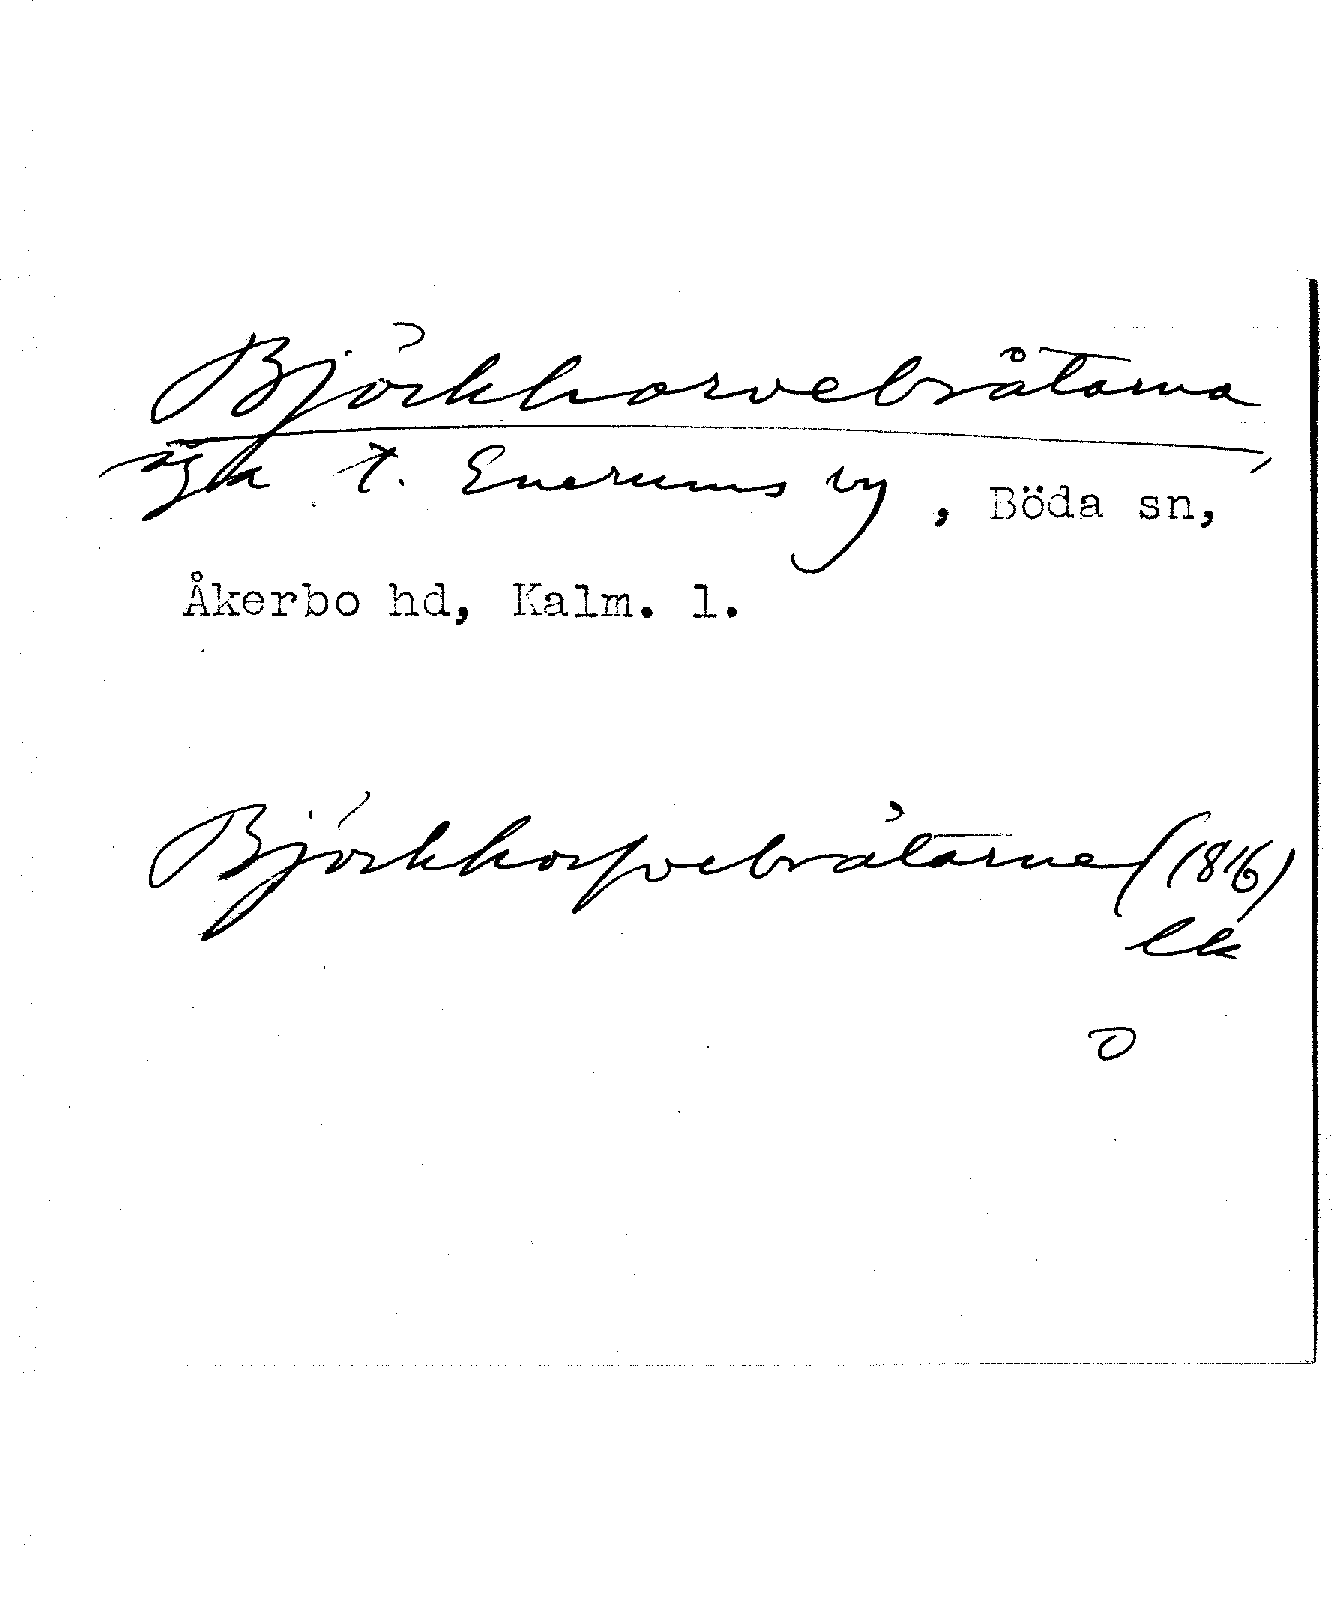 Björkhorvebråtarna,
ägor t. Enerums by, Böda sn,
Åkerbo hd, Kalm. l.
Björkhorfvebråtarne (1816)
lk